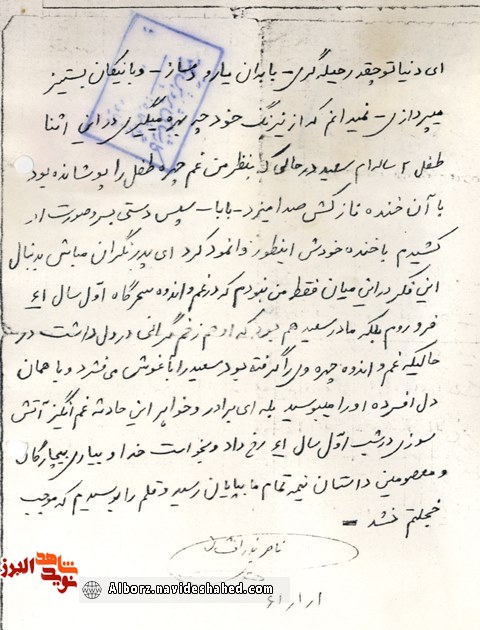 ای دنیا تو چقدر حیله گری - با بدان یار و دمساز - و با نیکان بستیز
میپردازی - نمیدانم که از نیرنگ خود چه بهره میگیری در این اثنا
طفل ۲ ساله ام سعید در حالی که بنظر من غم چهره طفل را پوشانده بود
با آن خنده نازکش صدا میزد - بابا - سپس دستی بسر و صورت او
کشیدم با خنده خودش اینطور وانمود کرد ای پدر نگران مباش بدنبال
این فکر در این میان فقط من نبودم که در غم و اندوه سحرگاه اول سال ۶۱
فرو روم بلکه مادر سعید هم بود که او هم زخم گرانی در دل داشت در
حالیکه غم و اندوه چهره وی را گرفته بود سعید را در آغوش می فشرد و با همان
دل افسرده او را میبوسید بله ای برادر و خواهر این حادثه غم انگیز آتش
سوزی در شب اول سال ۶۱ رخ داد و بخواست خدا و بیاری بیچارگان
و معصومین داستان نیمه تمام ما بپایان رسید و قلم را بوسیدیم که موجب
خجلتم نشد -
ناصر
۱ر۱ر۶۱
شاهد
نوید
البرز
Alborz.navideshahed.com